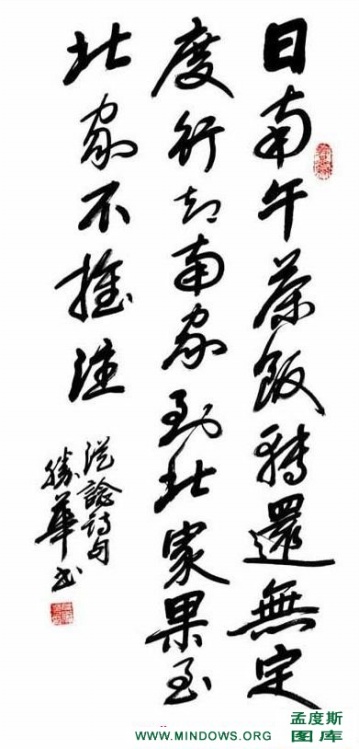 日南午茶飯轉還無定
度行却南家到北家果至
北家不推注
從諗詩句
勝華书
孟度斯
WWW.MINDOWS.ORG 图库